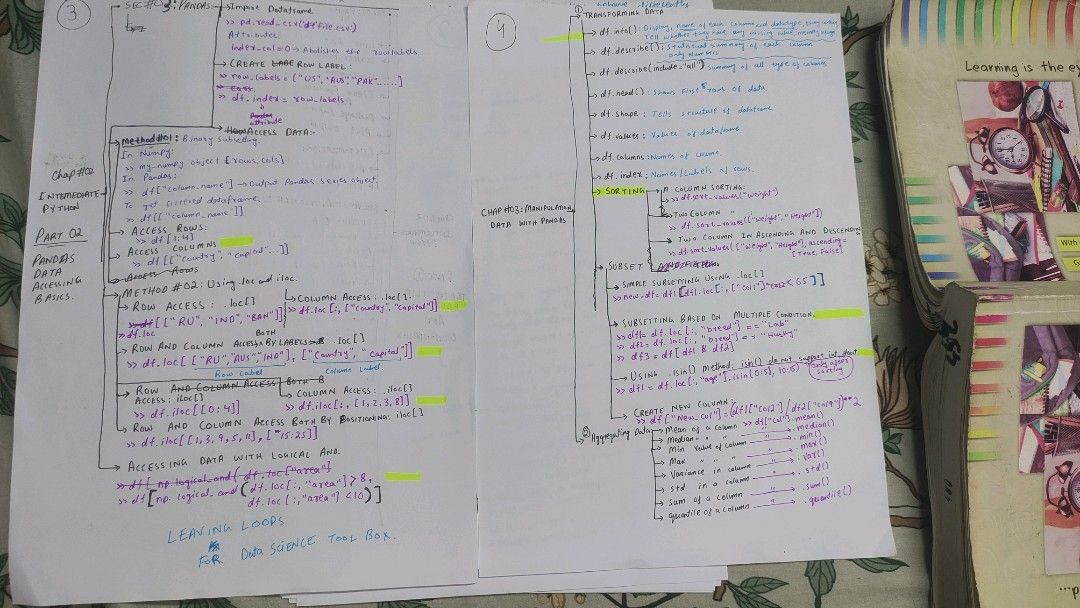 3
SEC#03: PANDAS
Import Dataframe
>> pd.read_csv("dtfile.csv")
Attributes:
index_col=0 → Abolishes the row labels
CREATE ROW LABEL:
>> row_labels = ["US", "AUS" "PAK".....]
>> df.index = row_labels
attribute
ACCESS DATA:-
Chap#02
INTERMEDIATE
PYTHON
PART 02
PANDAS
DATA
ACCESSING
BASICS.
Method#01: Binary Subsetting.
In Numpy:
>> my_numpy_object [rows, cols]
In Pandas:
>> df["column_name"] → Output Pandas series object.
To get filtered dataframe,
>> df[["column_name"]]
ACCESS ROWS:
>> df[1:4]
ACCESS COLUMNS
>> df[["country", "capital"...]]
Access Rows
METHOD #02: Using loc and iloc.
ROW ACCESS: .loc[]
["RU", "IND", "BAN"]]
>> df.loc
COLUMN ACCESS: .loc[]
>> df.loc[:, ["country", "capital"]]
BOTH
ROW AND COLUMN ACCESS BY LABELS .loc[]
>> df.loc[["RU","AUS","IND"], ["Country", "Capital"]]
Row Label
Column Label.
ROW AND COLUMN ACCESS BOTH B
ACCESS: iloc[]
>> df.iloc[[0:4]]
COLUMN ACCESS: .iloc[]
>> df.iloc[:, [1,2,3,8]]
ROW AND COLUMN ACCESS BOTH BY POSITIONING: iloc[]
>> df.iloc[[1,3,9,5,11], ["15:25]]
ACCESSING DATA WITH LOGICAL AND.
>> df[ np.logical_and( df.loc["area"]
>> df[np.logical_and(df.loc[:,"area"] > 8,
df.loc[:,"area"] <10)]
LEAVING LOOPS
FOR DATA SCIENCE TOOL BOX.
4
CHAP#03: MANIPULATION
DATA WITH PANDAS
① TRANSFORMING DATA
df.info(): Display, name of each column and datatype,
Tell whether they have any missing value, memory usage
df.describe(): Statistical summary of each column
only numeric
df.describe(include="all") Summary of all type of columns
df.head(): Shows First 5 rows of data
df.shape: Tells structure of dataframe
df.values: Values of dataframe
df.columns: Names of column.
df.index: Names/Labels of rows.
SORTING
A COLUMN SORTING:
>> df.sort_values("weight")
TWO COLUMN "
>> df.sort_values(["weight", "Height"])
TWO COLUMN IN ASCENDING AND DESCENDING
df.sort_values(["Weight", "Height"], ascending=
[True, False]
SUBSET
SIMPLE SUBSETTING USING .loc[]
>> new_df = df1[df1.loc[:, "col1"] < 65]]
SUBSETTING BASED ON MULTIPLE CONDITION.
>> df1 = df.loc[:, "breed"] == "Lab"
>> df2 = df.loc[:, "breed"] == "Husky"
>> df3 = df[df1 & df2]
USING .isin() method. isin() do not support int, float
>> df1 = df.loc[:, "age"].isin(0:5), 10:15)
Only after
Sorting
CREATE NEW COLUMN:
>> df["New_Col"] = (df1["Col2"] / df2["col9"])**2
② Aggregating Data
Mean of a column >> df["Col"].mean()
Median " " " .median()
Min value of column " .min()
Max " " " .max()
Variance in column " .var()
Std in a column " .std()
Sum of a column " .sum()
quantile of a column " .quantile()
Learning is the ey
With